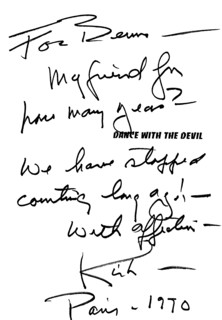 For Benno —
My friend for
how many years?
DANCE WITH THE DEVIL
We have stopped
counting long ago! —
With affection —
Kirk —
Paris - 1990